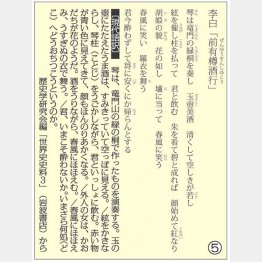 李白「前有樽酒行」
琴は竜門の緑桐を奏し 玉壺美酒 清くして空しきが若し
絃を催し柱を払って 君と飲む 朱を看て碧と成れば 顔始めて紅なり
胡姫の貌 花の如し 壚に当って 春風に笑う
春風に笑い 羅衣を舞う
君今酔わずして将に安くにか帰らんとする
【現代語訳】 琴は、竜門山の緑の桐で作ったものを演奏する。玉の
壺にたたえたうま酒は、すみきっていて空っぽに見える。/絃をかきな
らし、琴柱(ことじ)をうごかしながら、君といっしょに飲む。赤い物
が青い色に見えてきて、顔もほんのりあかくなる。/外人の女は、かお
だちが花のようだ。酒をうりながら、春風にほほえむ。/春風にほほえ
み、うすぎぬの衣で舞う。/君、いまこそ酔わないか。いまさら何処(どこ)へどうおちつこうというのか。
歴史学研究会編『世界史史料3』(岩波書店)から
⑤